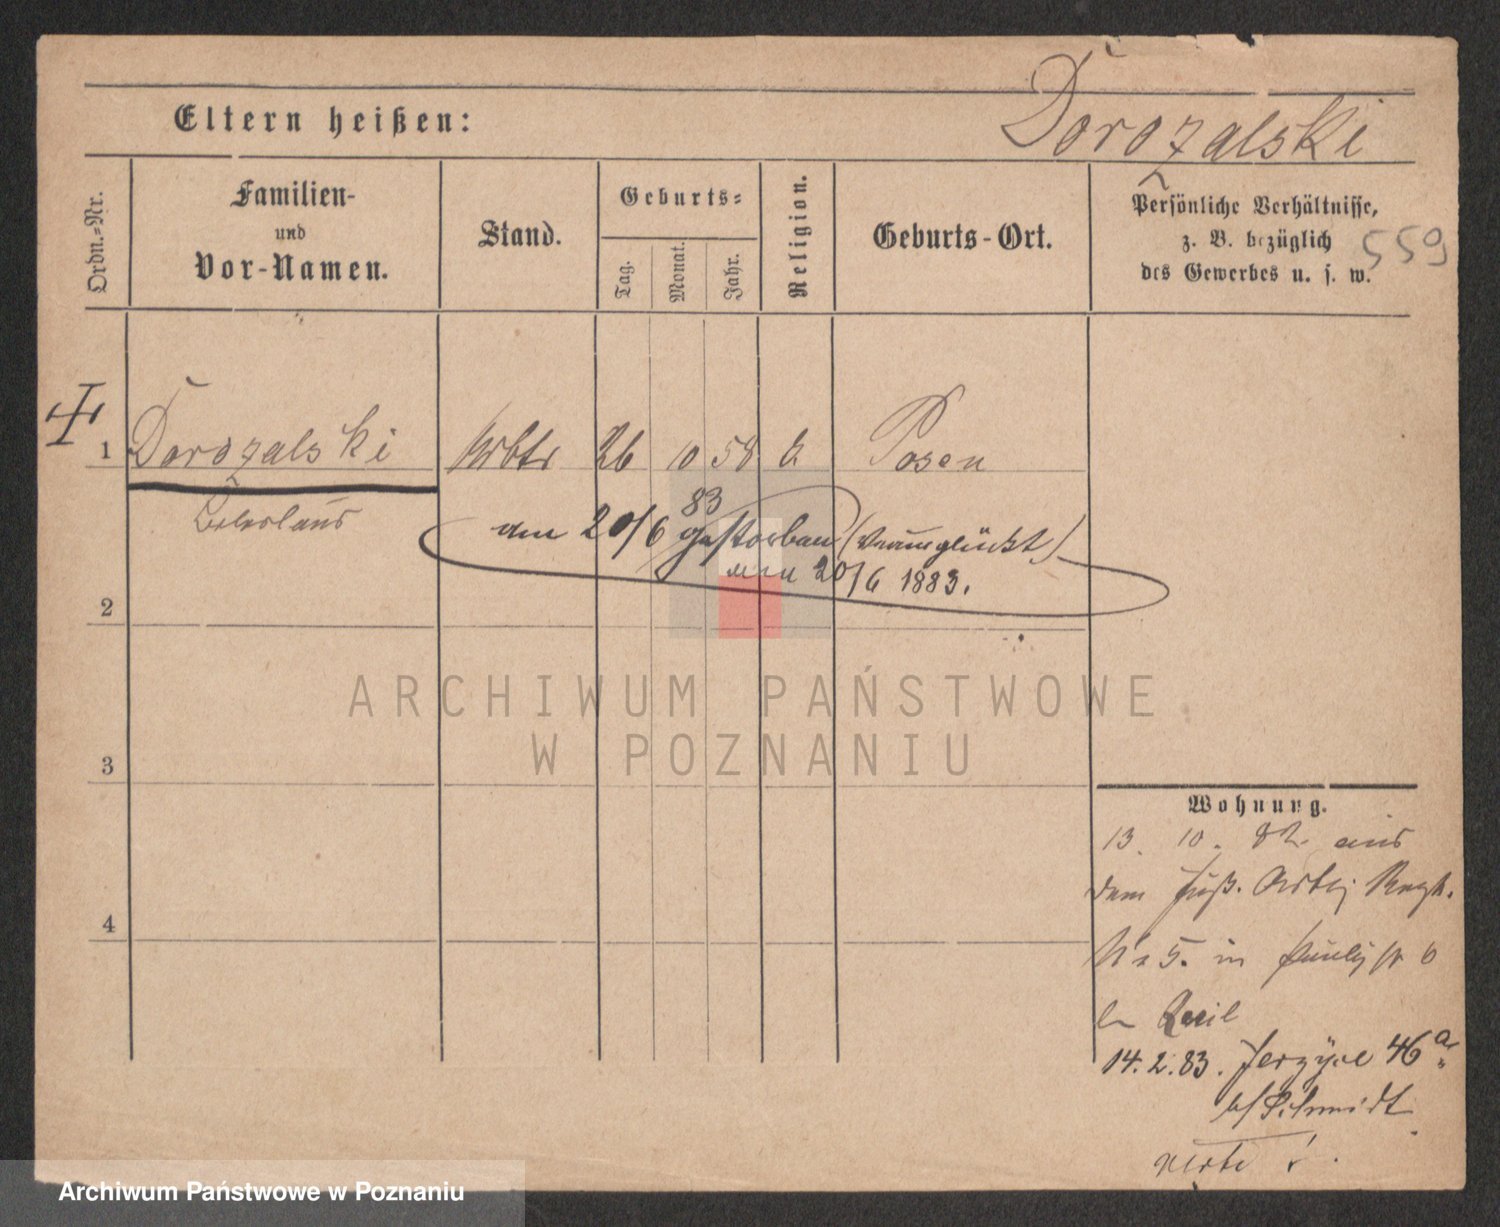 Eltern heißen:
Dorozalski
Ordn.-Nr.
Familien-
und
Vor-Namen.
Stand.
Geburts-
Tag.
Monat.
Jahr.
Religion.
Geburts-Ort.
Persönliche Verhältnisse,
z. B. bezüglich
des Gewerbes u. s. w.
559
1 Dorozalski Arbtr 26 10 58 k Posen
83
am 20/6 gestorben (verunglückt)
am 20/6 1883.
2
3
4
Wohnung.
13. 10. 82. aus
dem Fuß. Artlj Regt.
No 5. in Paulij str 6
14. 2. 83. Jerzyce 46 a
b/ Schmidt
verte !
ARCHIWUM PAŃSTWOWE
W POZNANIU
Archiwum Państwowe w Poznaniu